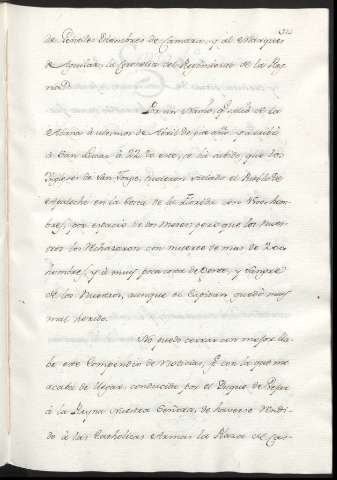 de Peñeles Diembres de Camara, y al Marques
de Aguilar, la Coronelia del Regimiento de la Rey
na.
Por un Navio, q.e salió de la
Havana à ultimos de Abril de este año, y arribó
à San Lucar à 22 de este, se ha sabido, que los
Ingleses de San Jorge, tuvieron sitiado el Pueblo de
Apalache en la Costa de la Florida con hom
bres, por espacio de dos meses; pero que los Nues
tros los rechazaron con muerte de mas de 200
hombres, y à muy poca costa de Gente, y sangre
de los Nuestros, aunque el Capitan quedò muy
mal herido.
No puedo cerrar con mejor lla
be este Compendio de Noticias, q.e con la que me
acaba de llegar conducida por el Duque de Bejar
à la Reyna Nuestra Señora, de haverse Rendi
do à las Catholicas Armas la Plaza de Cas